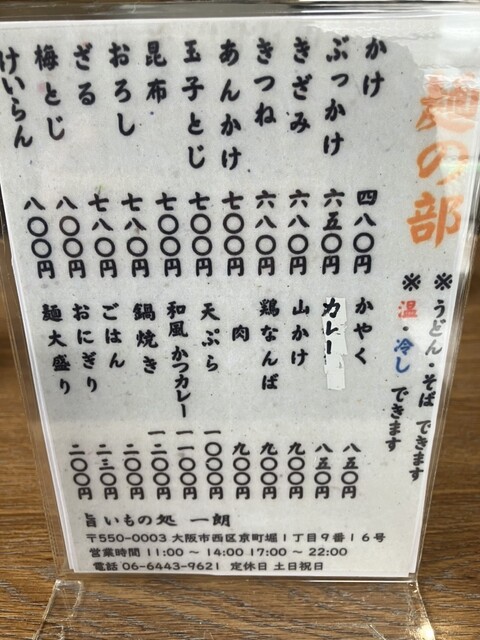 麺の部
※うどん・そばできます
※温・冷しできます
かけ 四八〇円
ぶっかけ 六五〇円
きざみ 六八〇円
きつね 六八〇円
あんかけ 七〇〇円
玉子とじ 七〇〇円
昆布 七〇〇円
おろし 七八〇円
ざる 七八〇円
梅とじ 八〇〇円
けいらん 八〇〇円
かやく 八五〇円
カレー 八五〇円
山かけ 九〇〇円
鶏なんば 九〇〇円
肉 九〇〇円
天ぷら 一〇〇〇円
和風かつカレー 一一〇〇円
鍋焼き 一二〇〇円
ごはん 二〇〇円
おにぎり 二三〇円
麺大盛り 二〇〇円
旨いもの処 一朗
〒550-0003 大阪市西区京町堀1丁目9番16号
営業時間 11:00 ~ 14:00 17:00 ~ 22:00
電話 06-6443-9621 定休日 土日祝日